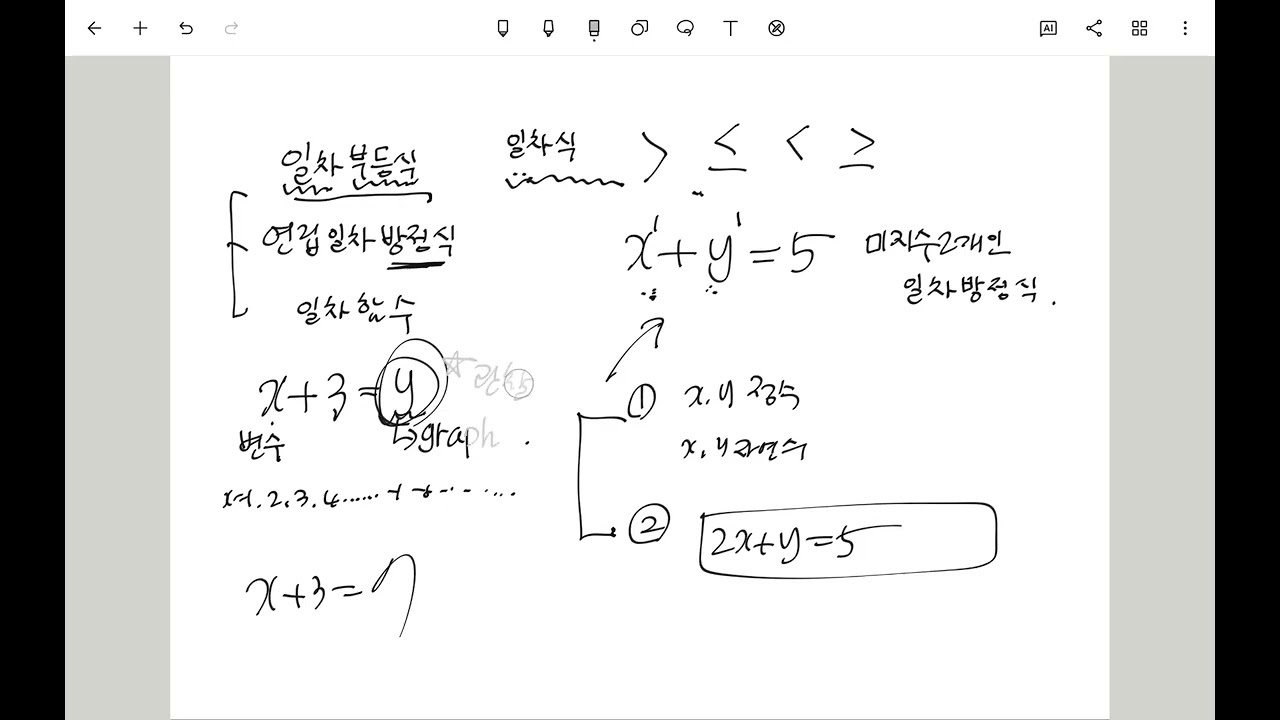 일차부등식
연립일차방정식
일차함수
x+3=y
변수
graph
x+3=7
일차식 > ≤ < ≥
x¹+y¹=5 미지수2개인
일차방정식.
① x, y 정수
x, y 자연수
② 2x+y=5
T
AI